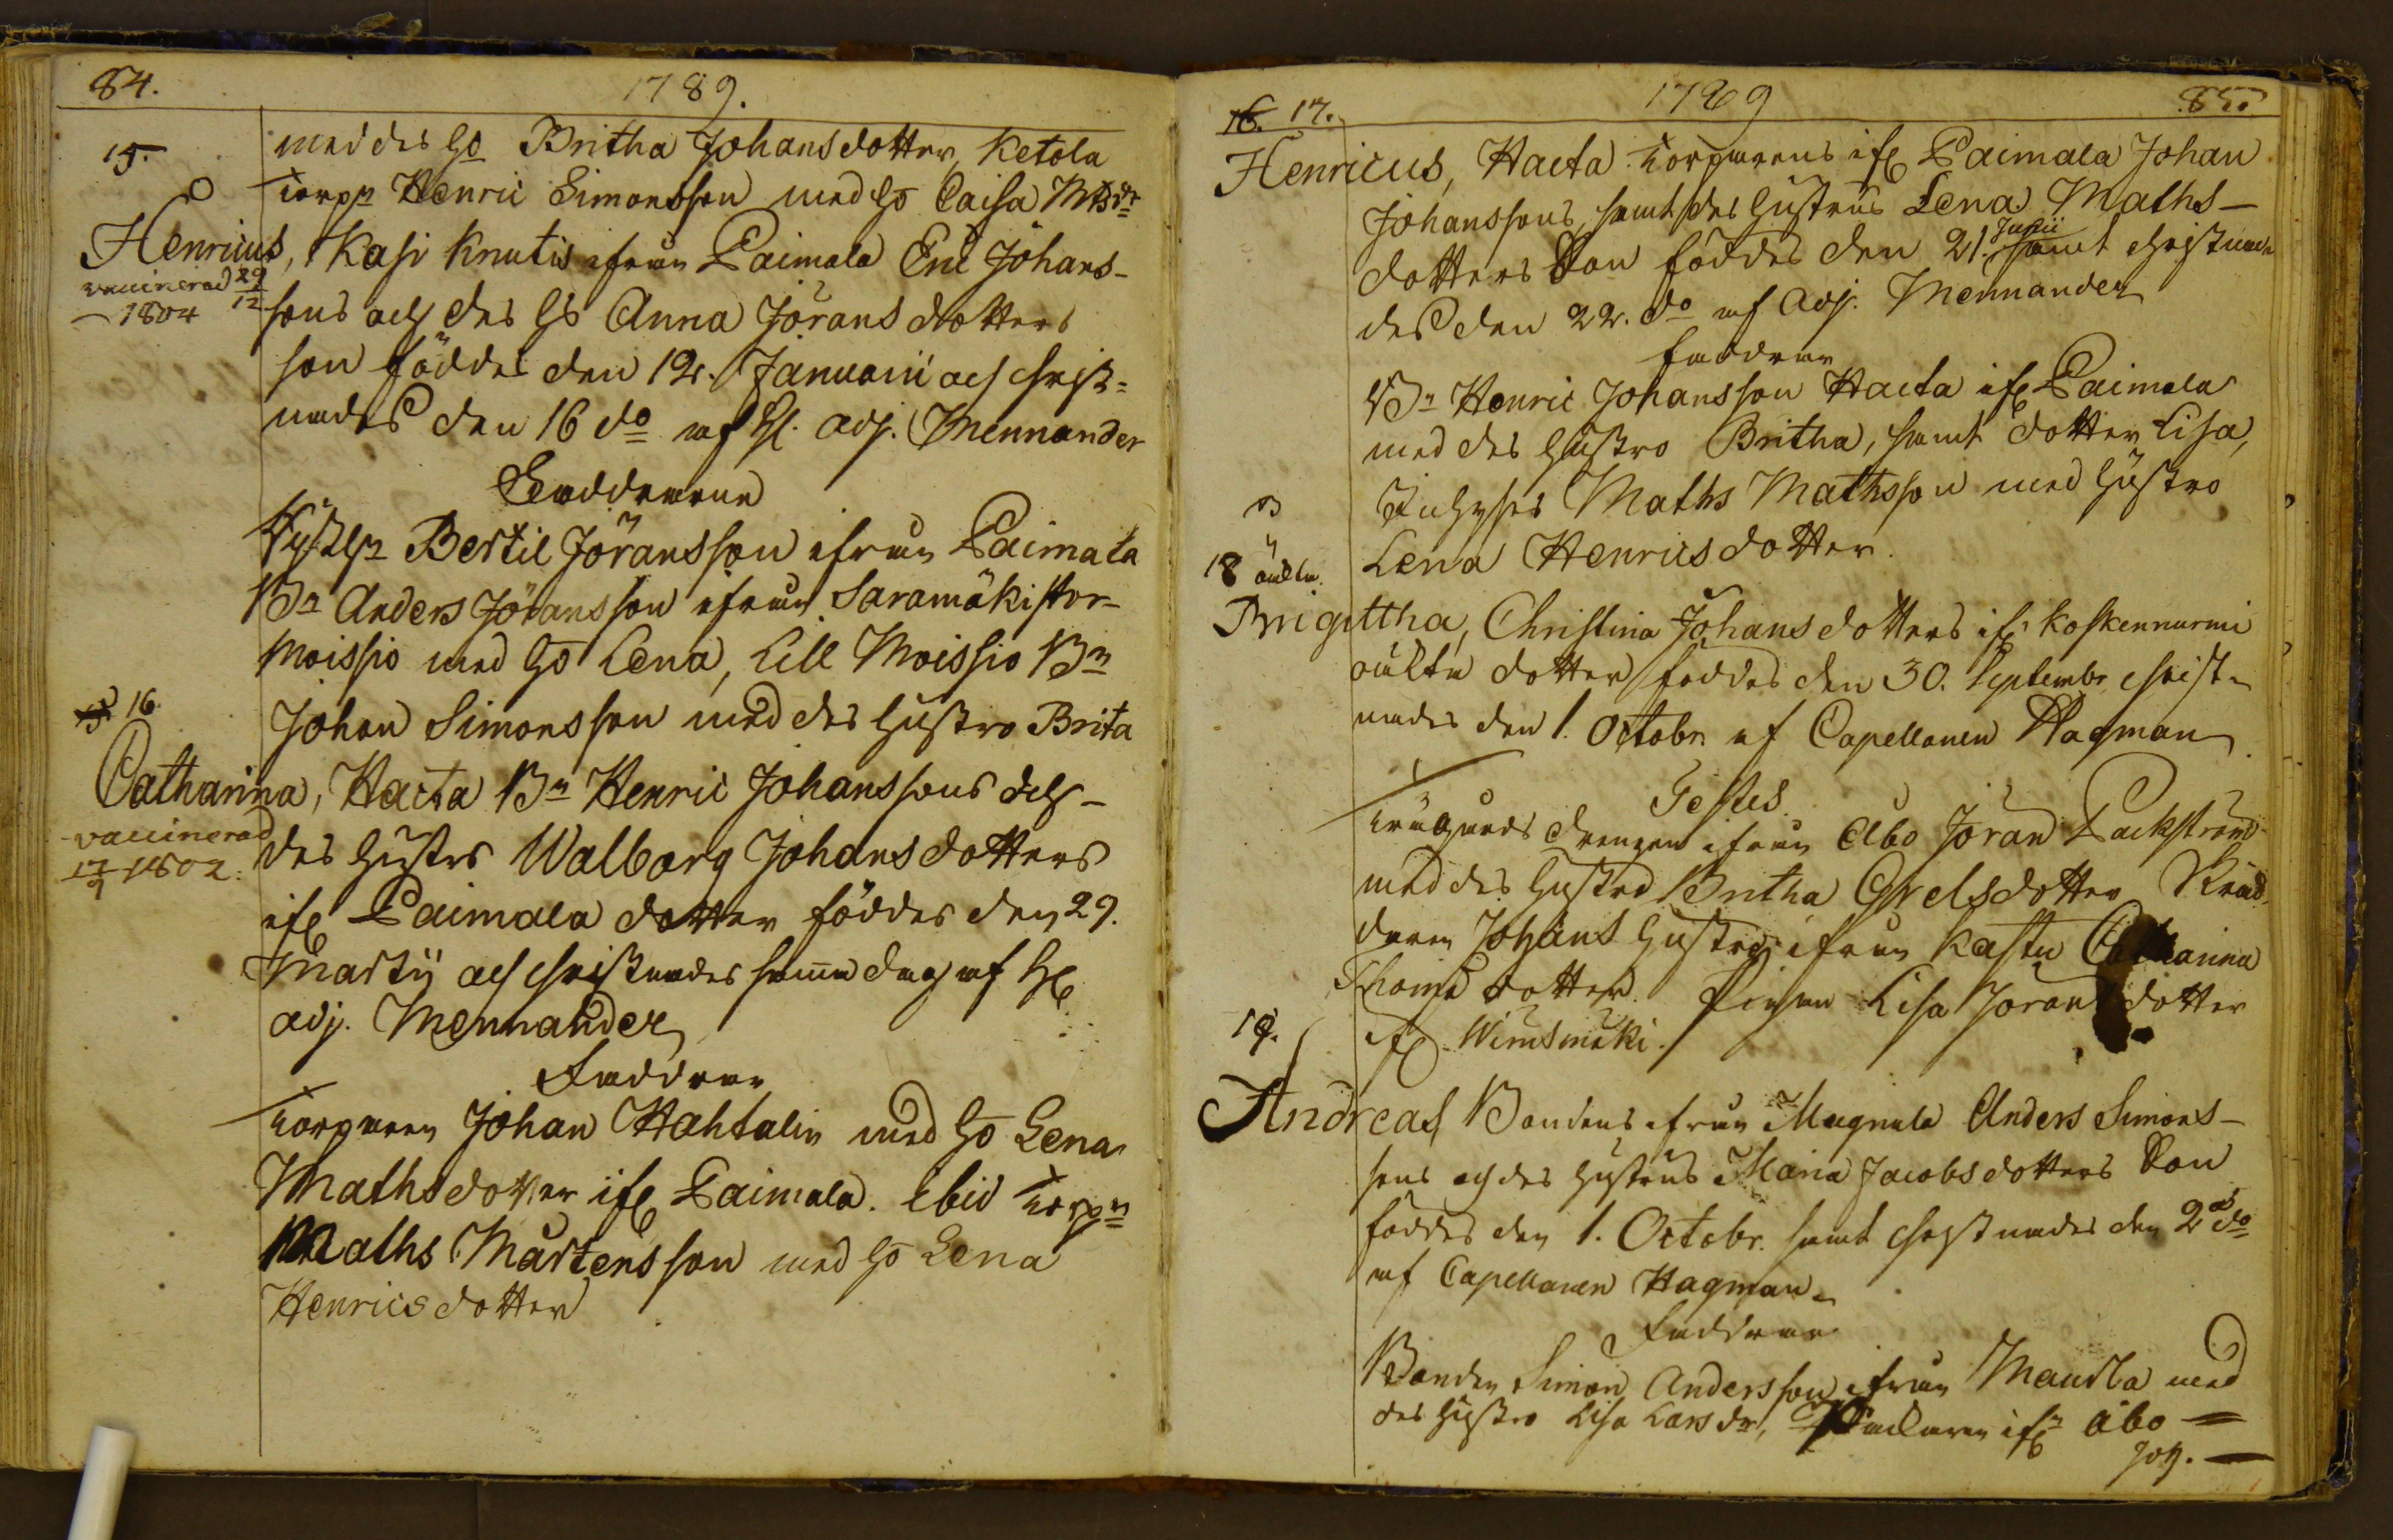 84. 1789.
med des Ho Britha Johansdotter, Ketola
15.
torpn Henric Simonsson med Ho Caisa Mtsdr
Henricus, Kasi Knutis ifrun Paimala Eric Johans-
vaccinerad 29/12 1804
sons och des Hs Anna Jörans dotters
son föddes den 12. Januarii och christ=
nades den 16 do af H. adj. Mennander
Faddrarne
Bertil Jöransson ifrun Paimala
Bn Anders Jöransson ifrun Saramäki stor-
Moissio med Ho Lena, Lill Moissio Bn
16.
Johan Simonsson med des Hustro Brita
Catharina, Hacta Bn Henric Johanssons och
vaccinerad 17/9 1802.
des Hustrs Walborg Johansdotters
ifr Paimala dotter föddes den 29.
Martij och christnades samma dag af Hr
adj. Mennander
Faddrar
torparen Johan Hahtalin med Ho Lena
Mathsdotter ifr Paimala. Ebid torpn
Maths Mårtensson med Ho Lena
Henricsdotter
16. 17. 1789 85.
Henricus, Hacta torparens ifr Paimala Johan
Johanssons, samt des Hustrus Lena Maths-
dotters Son föddes den 21. Junii samt christna-
des den 22. do af Adj. Mennander
faddrar
Bn Henric Johansson Hacta ifr Paimala
med des Hustro Britha, samt dotter Lisa,
Inhyses Maths Mathsson med Hustro
Lena Henricsdotter.
18 oäckta.
Brigittha, Christina Johansdotters ifr Koskennurmi
oäkta dotter föddes den 30. Septembr christ-
nades den 1. Octobr af Capellanen Hagman
Testes
krägårds drengen ifrun Abo Jöran Packstrand
med des Hustro Britha Grelsdotter
Johans Hustro ifrun Kastu Catharina
Thomædotter. Pigan Lisa Jöransdotter
19.
ifr Wimsmäki.
Andreas Bondens ifrun Magnula Anders Simons-
sons och des Hustrus Maria Jacobsdotters Son
föddes den 1. Octobr. samt christnades den 2 do
af Capellanen Hagman.
Faddrar
Bonden Simon Andersson ifrun Maunla med
des Hustro Lisa Larsdr, ifr Åbo
Joh.